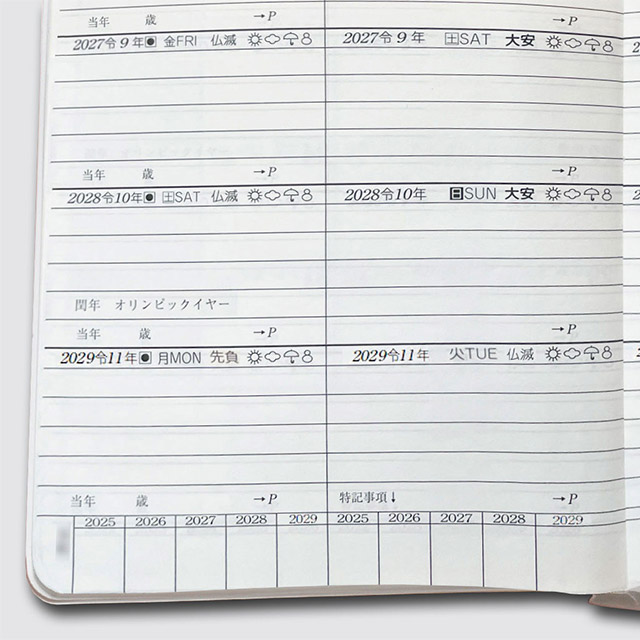 当年 歳 →P →P
2027令9年 金FRI 仏滅 2027令9年 土SAT 大安
当年 歳 →P →P
2028令10年 土SAT 仏滅 2028令10年 日SUN 大安
閏年 オリンピックイヤー
当年 歳 →P →P
2029令11年 月MON 先負 2029令11年 火TUE 仏滅
当年 歳 →P 特記事項↓ →P
2025 2026 2027 2028 2029 2025 2026 2027 2028 2029